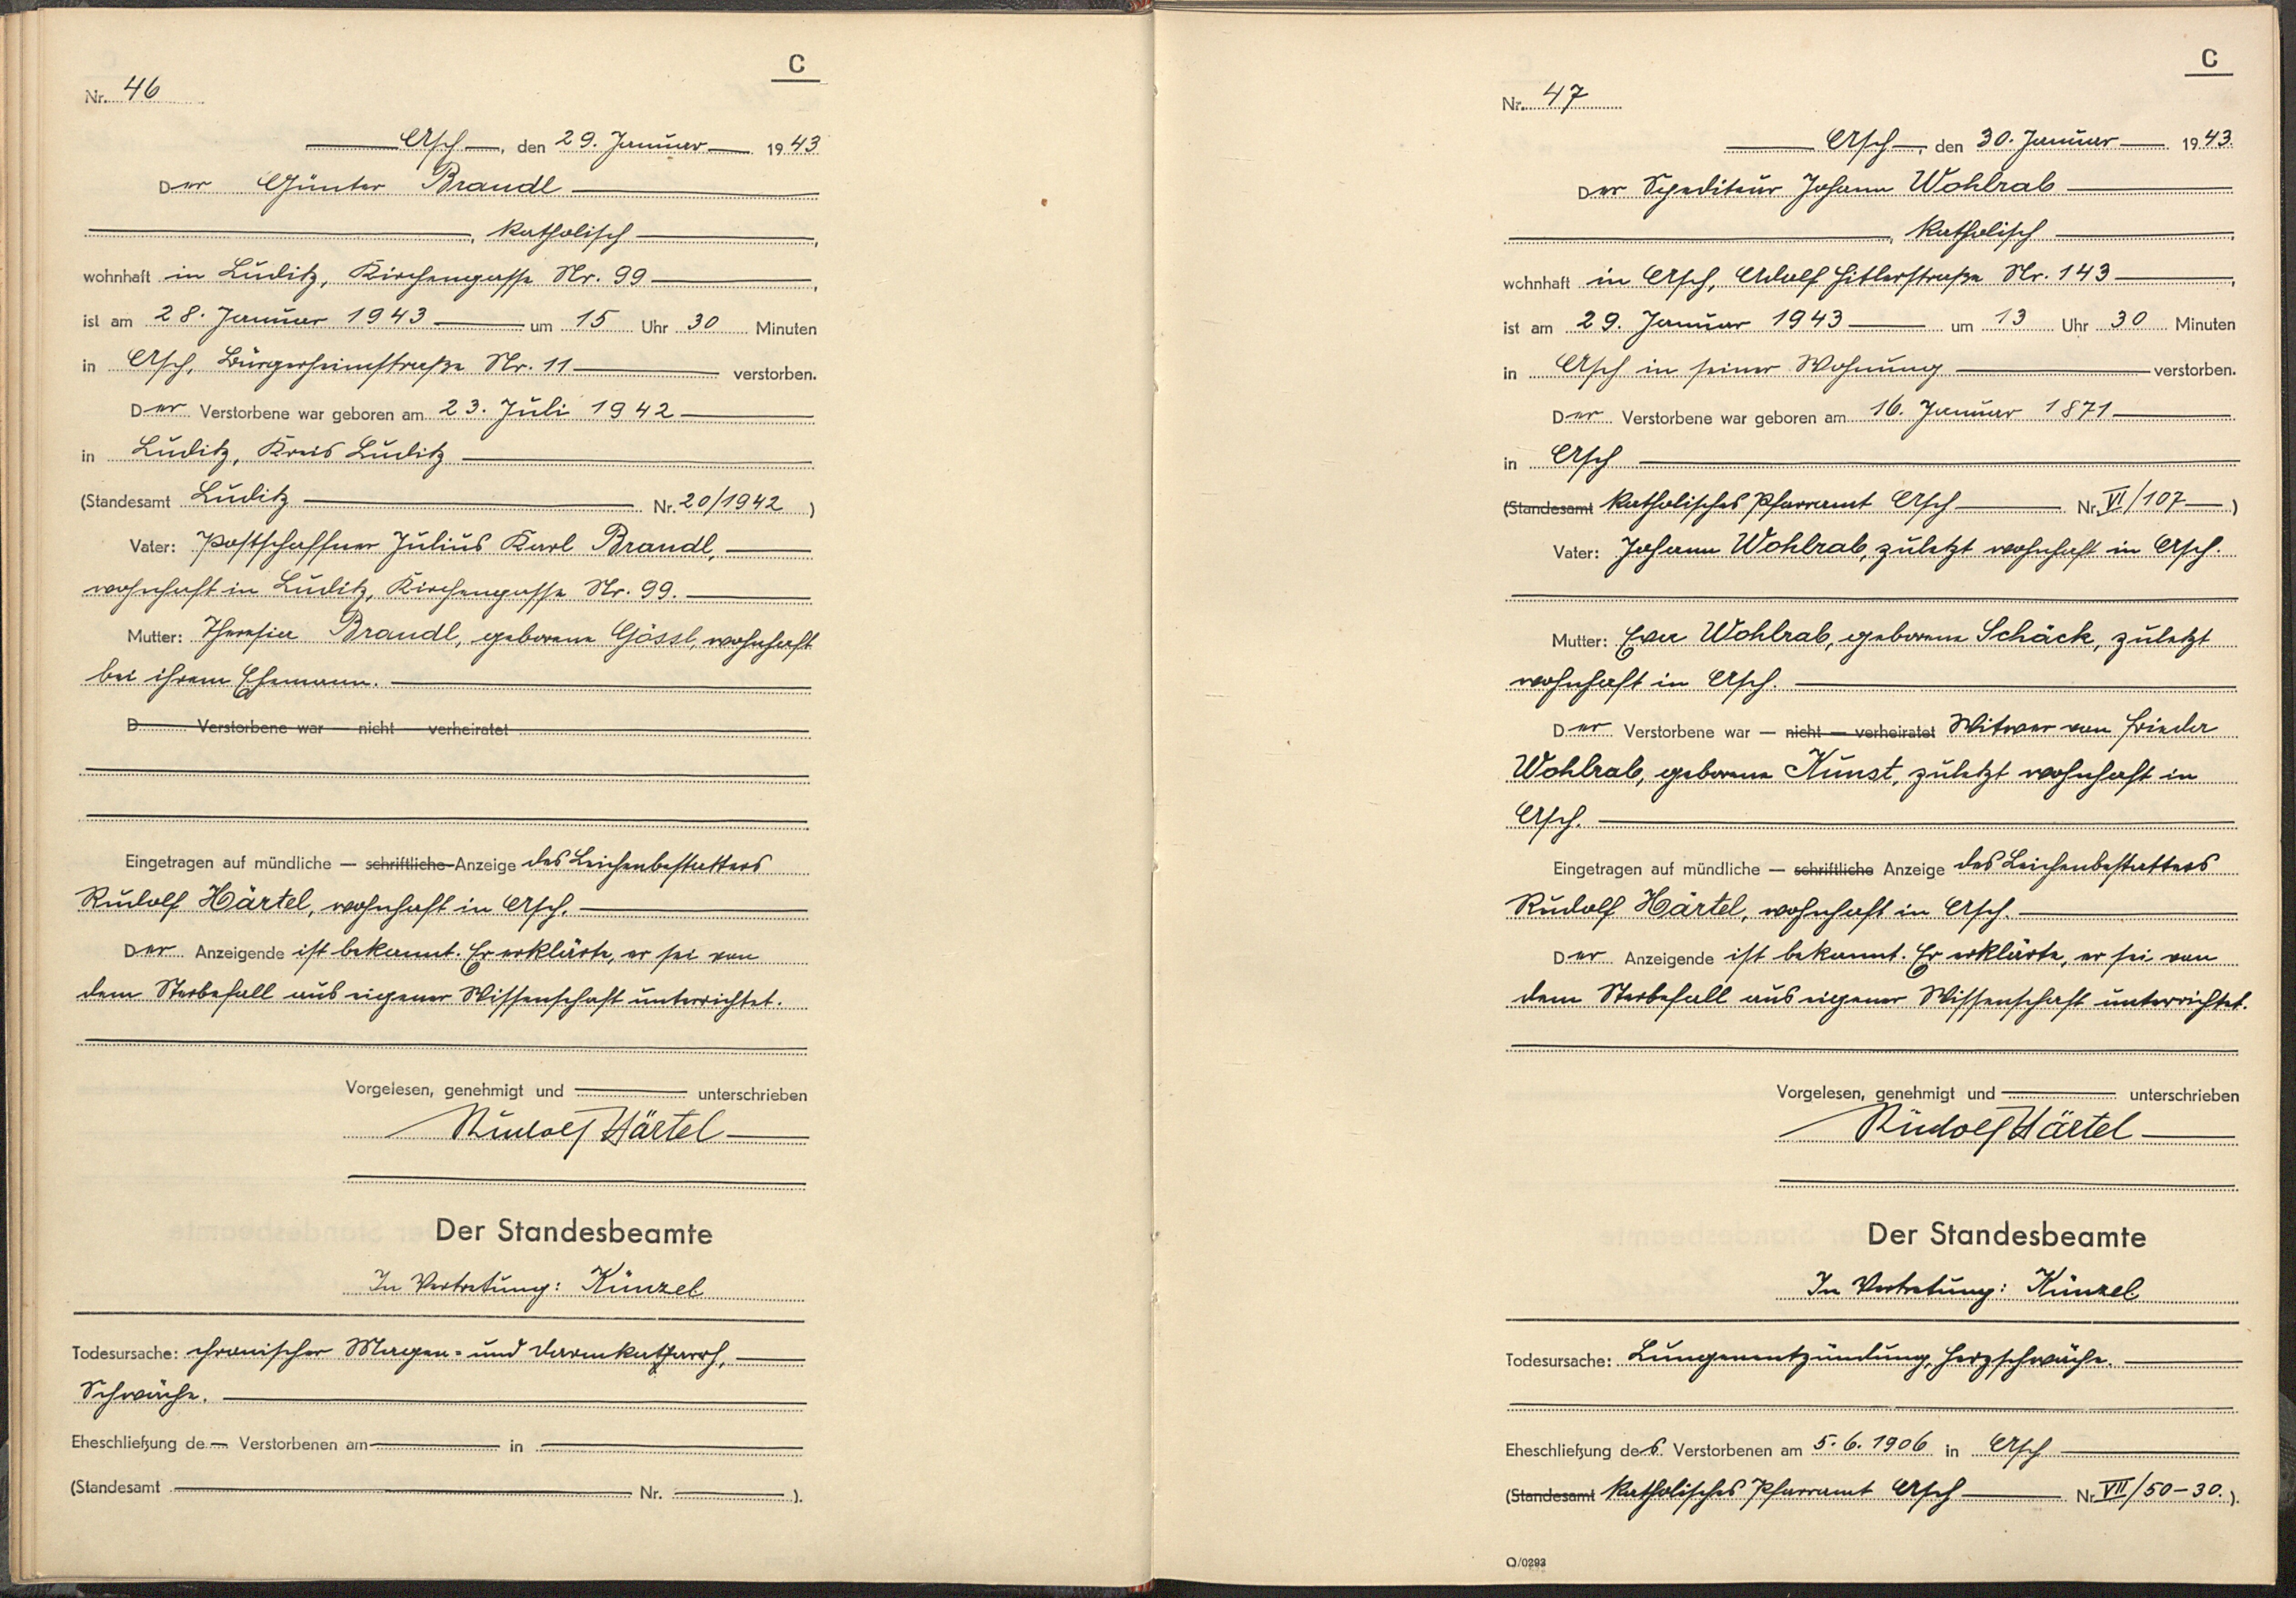 C
Nr. 46
Asch, den 29. Januar 1943
Der Günter Brandl
, katholisch,
wohnhaft in Luditz, Kirchengasse Nr. 99,
ist am 28. Januar 1943 um 15 Uhr 30 Minuten
in Asch, Bürgerheimstraße Nr. 11 verstorben.
Der Verstorbene war geboren am 23. Juli 1942
in Luditz, Kreis Luditz
(Standesamt Luditz Nr. 20/1942)
Vater: Postschaffner Julius Karl Brandl,
wohnhaft in Luditz, Kirchengasse Nr. 99.
Mutter: Theresia Brandl, geborene Gössl, wohnhaft
bei ihrem Ehemann.
D Verstorbene war — nicht — verheiratet
Eingetragen auf mündliche — schriftliche Anzeige des Leichenbestatters
Rudolf Härtel, wohnhaft in Asch.
Der Anzeigende ist bekannt. Er erklärte, er sei von
dem Sterbefall aus eigener Wissenschaft unterrichtet.
Vorgelesen, genehmigt und unterschrieben
Rudolf Härtel
Der Standesbeamte
In Vertretung: Künzel
Todesursache: chronischer Magen- und Darmkatharrh,
Schwäche.
Eheschließung de Verstorbenen am in
(Standesamt Nr. ).
C
Nr. 47
Asch, den 30. Januar 1943.
Der Spediteur Johann Wohlrab
, katholisch,
wohnhaft in Asch, Adolf Hitlerstraße Nr. 143,
ist am 29. Januar 1943 um 13 Uhr 30 Minuten
in Asch in seiner Wohnung verstorben.
Der Verstorbene war geboren am 16. Januar 1871
in Asch
(Standesamt katholisches Pfarramt Asch Nr. VI/107)
Vater: Johann Wohlrab, zuletzt wohnhaft in Asch.
Mutter: Eva Wohlrab, geborene Schäck, zuletzt
wohnhaft in Asch.
Der Verstorbene war — nicht — verheiratet Witwer von Frieda
Wohlrab, geborene Kunst, zuletzt wohnhaft in
Asch.
Eingetragen auf mündliche — schriftliche Anzeige des Leichenbestatters
Rudolf Härtel, wohnhaft in Asch.
Der Anzeigende ist bekannt. Er erklärte, er sei von
dem Sterbefall aus eigener Wissenschaft unterrichtet.
Vorgelesen, genehmigt und unterschrieben
Rudolf Härtel
Der Standesbeamte
In Vertretung: Künzel
Todesursache: Lungenentzündung, Herzschwäche.
Eheschließung des Verstorbenen am 5.6.1906 in Asch
(Standesamt katholisches Pfarramt Asch Nr. VII/50-30.).
O/0293